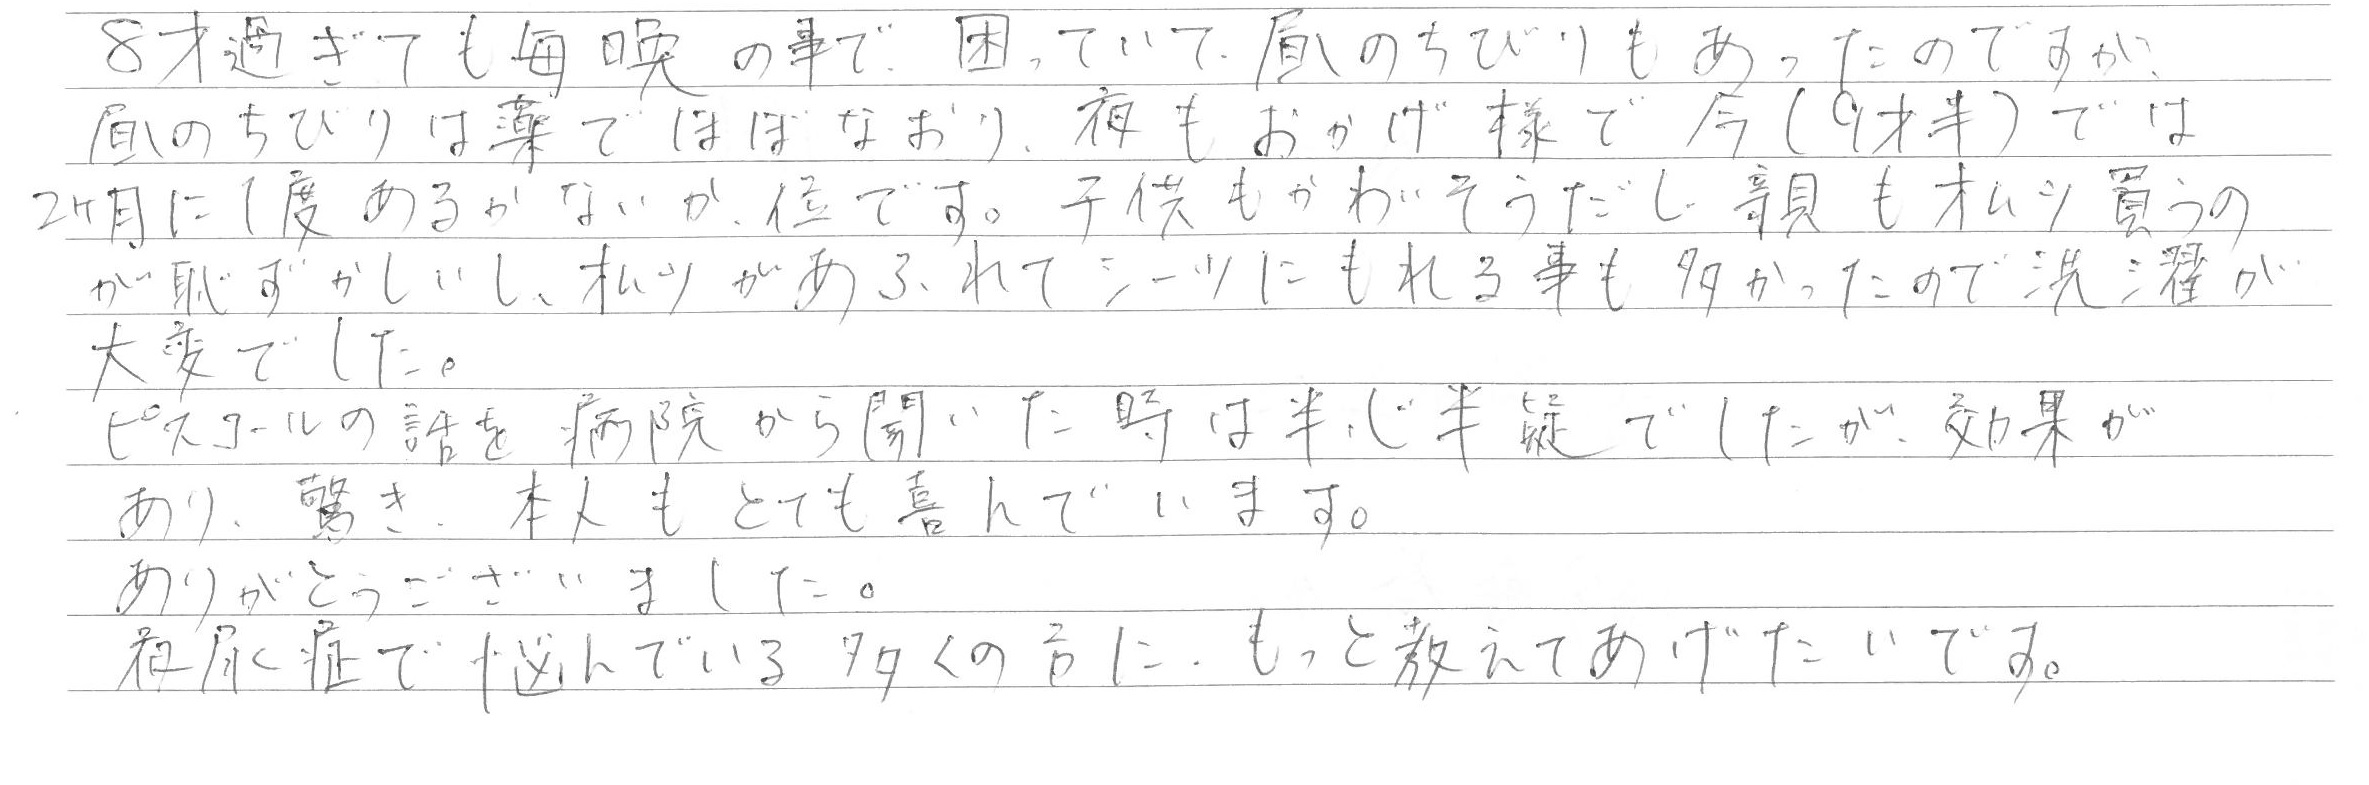 8才過ぎても毎晩の事で、困っていて、昼のちびりもあったのですが、
昼のちびりは薬でほぼなおり、夜もおかげ様で今(9才半)では
2ヶ月に1度あるかないか、位です。子供もかわいそうだし、親もオムツ買うの
が恥ずかしいし、オムツがあふれてシーツにもれる事も多かったので洗濯が
大変でした。
ピスコールの話を病院から聞いた時は半心半疑でしたが、効果が
あり、驚き、本人もとても喜んでいます。
ありがとうございました。
夜尿症で悩んでいる多くの方に、もっと教えてあげたいです。